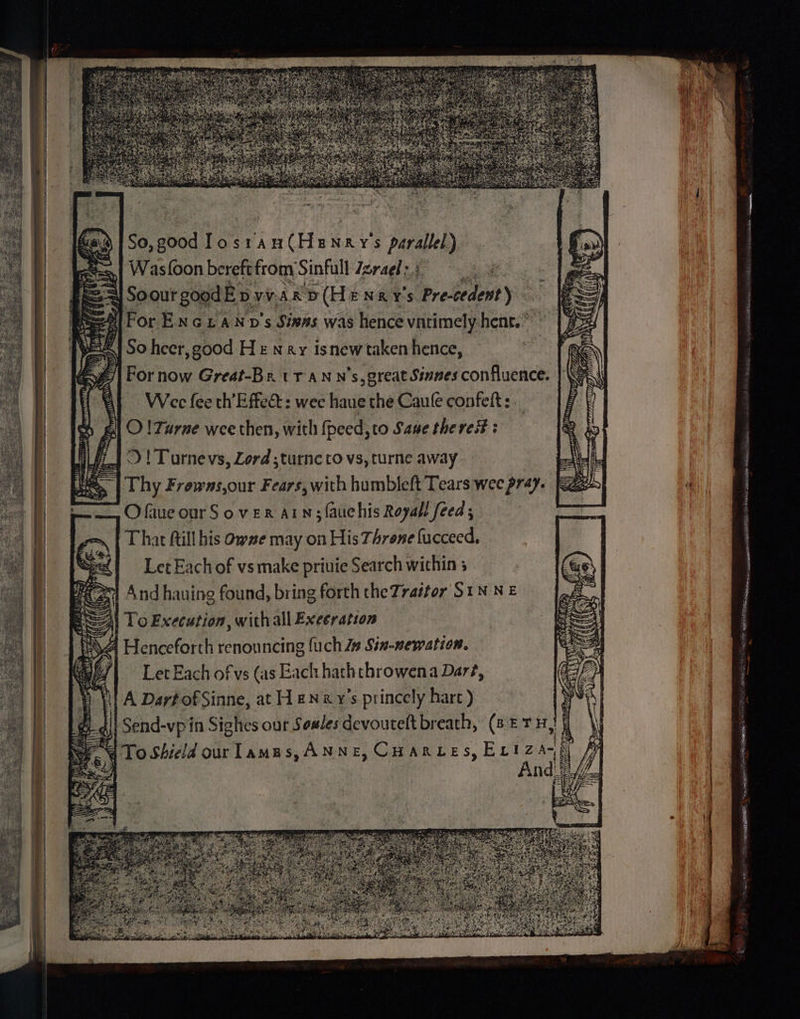 So, good Iosiah (Henry's parallel)
Was ſoon bereft from Sinfull Izrael:
So our good Edvvard (Henry's Pre-cedent)
For England's Sinns was hence vntimely hent.
So heer, good Henry is new taken hence,
For now Great-Britann's, great Sinnes confluence.
VVee ſee th'Effect: wee haue the Cauſe confeſt:
O! Turne wee then, with ſpeed, to Saue the rest:
O! Turne vs, Lord; turne to vs, turne away
Thy Frowns, our Fears, with humbleſt Tears wee pray.
O ſaue our Soverain; ſaue his Royall ſeed;
That ſtill his Owne may on His Throne ſucceed.
Let Each of vs make priuie Search within;
And hauing found, bring forth the Traitor Sinne
To Execution, with all Execration
Henceforth renouncing ſuch In Sin-newation.
Let Each of vs (as Each hath throwen a Dart,
A Dart of Sinne, at Henry's princely hart)
Send-vp in Sighes our Soules devouteſt breath,
To Shield our Iames, Anne, Charles, Eliza-
(beth,
And